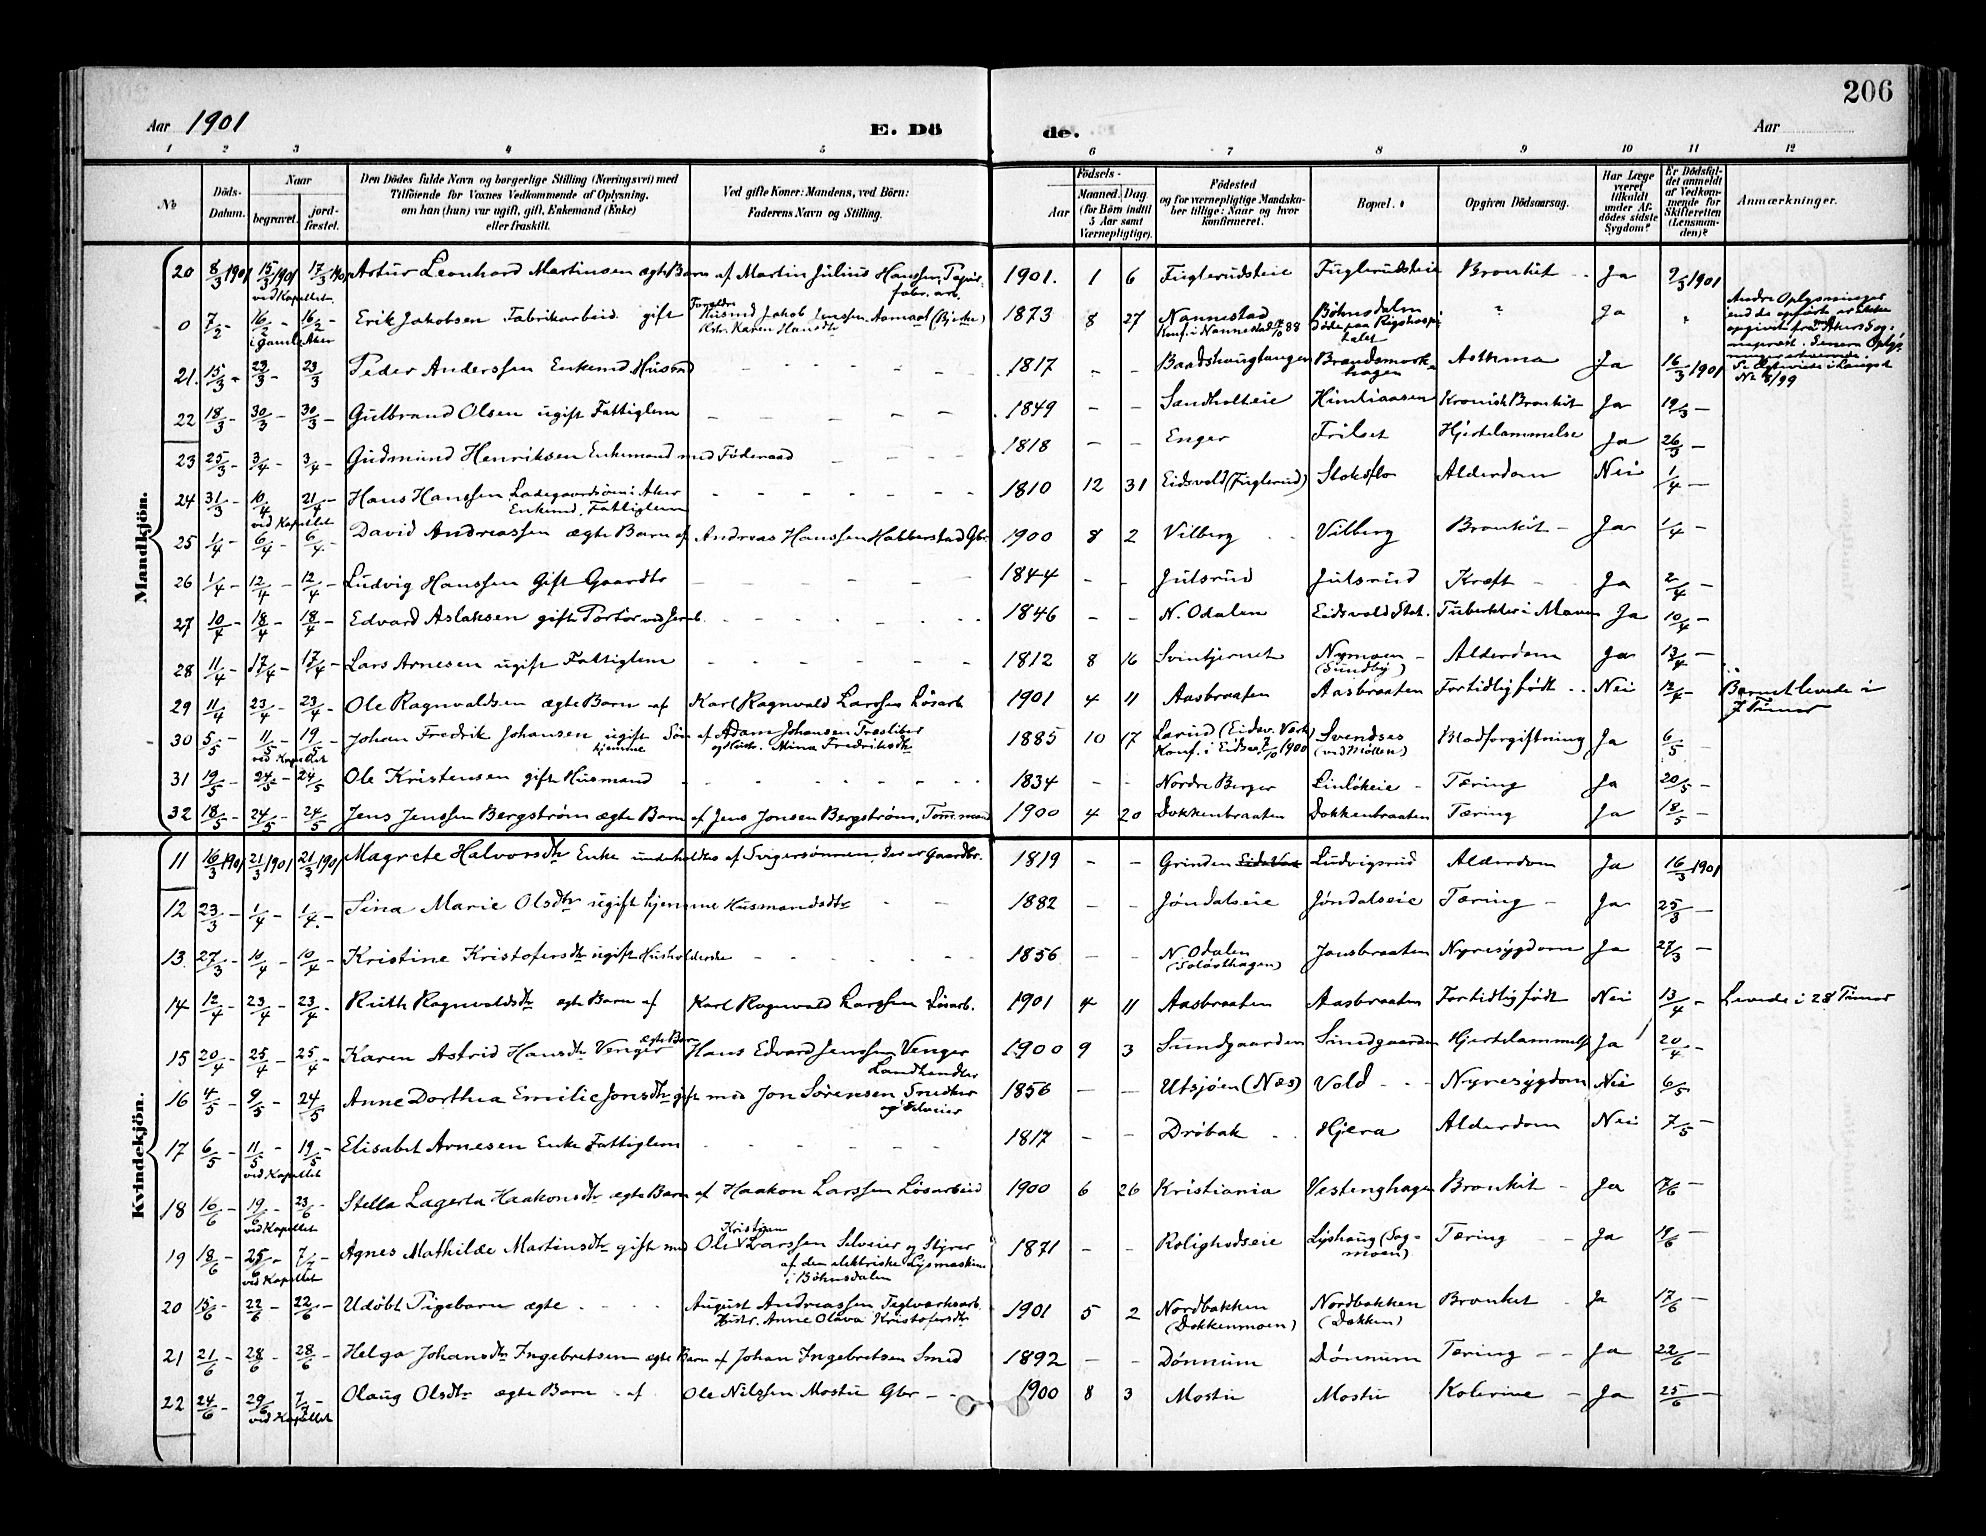 206
Aar 1901 E. Dö de. Aar
1 2 3 4 5 6 7 8 9 10 11 12
No Döds-Datum. Naar begravet. jordfæstet. Den Dödes fulde Navn og borgerlige Stilling (Næringsvei) med Tilföiende for Voxnes Vedkommende af Oplysning, om han (hun) var ugift, gift, Enkemand (Enke) eller fraskilt. Ved gifte Koner: Mandens, ved Börn: Faderens Navn og Stilling. Födsels- Aar Maaned. Dag (for Börn indtil 5 Aar samt Værnepligtige). Födested og for værnepligtige Mandskaber tillige: Naar og hvor konfirmeret. Bopæl. Opgiven Dödsaarsag. Har Læge været tilkaldt under Afdödes sidste Sygdom? Er Dödsfaldet anmeldt af Vedkommende for Skifteretten (Lensmanden)? Anmærkninger.
Mandkjön.
20 8/3 1901 15/3 1901 ved Kapellet. 17/3 1901 Artur Leonhard Martinsen ægte Barn af Martin Julius Hanssen, Papirfabr. arb. 1901. 1 6 Fuglerudsteie Fuglerudsteie Bronkit - Ja 9/3 1901
0 7/2 - 16/2 - i Gamle Aker 16/2 - Erik Jakobsen Fabrikarbeid. gift Foreldre Husmd Jakob Jenssen Aamaat (Bjerke) Kstr. Karen Hansdtr 1873 8 27 Nannestad Konf. i Nannestad 88 Böhnsdalen döde paa Rigshospitalet " Ja " Andre Oplysninger
21. 15/3 - 23/3 - 23/3 Peder Anderssen Enkemd Husmd - - - 1817 - - Baadshaugtangen Brandsmorkhagen Asthma Ja 16/3 1901 Se Ægteviede i Langset No 6/99
22 18/3 - 30/3 - 30/3 - Gulbrand Olsen ugift Fattiglem - - - - 1849 - - Sandholteie Himliaasen Kronisk Bronkit Ja 19/3 -
23 25/3 - 3/4 - 3/4 - Gudmund Henriksen Enkemand med Föderaad - - - 1818 - - Enger Frilset Hjertelammelse Ja 26/3 -
24 31/3 - 10/4 ved Kapellet 21/4 - Hans Hanssen Ladegaardsöen i Aker Enkemd. Fattiglem - - - - 1810 12 31 Eidsvold (Fuglerud) Stoksflo Alderdom Nei 1/4 -
25 1/4 - 6/4 - 6/4 - David Andreassen ægte Barn af Andreas Hanssen Habberstad Gbr 1900 8 2 Vilberg Vilberg Bronkit - Ja 1/4 -
26 1/4 - 12/4 - 12/4 - Ludvig Hanssen Gift Gaardbr - - - - 1844 - - Julsrud Julsrud Kræft - Ja 2/4 -
27 10/4 - 18/4 - 18/4 - Edvard Aslaksen gift Portör ved Jernb. - - - - 1846 - - N. Odalen Eidsvold Stat. Tuberkler i Maven Ja 10/4 -
28 11/4 - 17/4 - 17/4 - Lars Arnesen ugift Fattiglem - - - - 1812 8 16 Svintjernet Nymoen (Sundby) Alderdom Ja 13/4 -
29 11/4 23/4 - 23/4 - Ole Ragnvaldsen ægte Barn af Karl Ragnvald Larssen Lösarb 1901 4 11 Aasbraaten Aasbraaten Fortidlig födt - Nei 12/4 - Barnet levede i 7 Timer
30 5/5 11/5 - ved Kapellet 19/5 - Johan Fredrik Johansen ugift Sön hjemme af Adam Johansen Træsliber og Hustr. Mina Fredriksdtr 1885 10 17 Larud (Eidsv. Verk) Konf. i Eidsv. 7/10 1900 Svendses (ved Möllen) Blodforgiftning Ja 6/5 -
31 19/5 - 24/5 - 24/5 Ole Kristensen gift Husmand - - - - 1834 - - Nordre Berger Linlökeie - Tæring Ja 20/5 -
32 18/5 - 24/5 - 24/5 Jens Jenssen Bergström ægte Barn af Jens Jonsen Bergström, Tömmermand 1900 4 20 Dokkenbraaten Dokkenbraaten Tæring Ja 18/5 -
Kvindekjön.
11 16/3 1901 21/3 1901 21/3 1901 Magrete Halvorsdtr Enke underholdes af Svigersönnen, der er Gaardbr. 1819 - - Grinden Ludvigsrud Alderdom Ja 16/3 1901
12 23/3 - 1/4 - 1/4 - Sina Marie Olsdtr ugift hjemme Husmandsdtr - - 1882 - - Jöndalseie Jöndalseie Tæring - Ja 25/3 -
13 27/3 - 10/4 - 10/4 - Kristine Kristofersdtr ugift Husholderske - - - 1856 - - N. Odalen (Solörthagen) Jonsbraaten Nyresygdom Ja 27/3 -
14 12/4 - 23/4 - 23/4 - Ruth Ragnvaldsdtr ægte Barn af Karl Ragnvald Larssen Lösarb. 1901 4 11 Aasbraaten Aasbraaten Fortidlig födt Nei 13/4 - Levede i 28 Timer
15 20/4 - 25/4 - 25/4 - Karen Astrid Hansdtr Venger ægte Barn Hans Edvard Jenssen Venger Landhandler 1900 9 3 Sundgaarden Sundgaarden Hjertelammelse Ja 20/4 -
16 4/5 - 9/5 - 24/5 Anne Dorthea Emilie Jonsdtr gift med Jon Sörensen Snedker og Selveier 1856 - - Utsjöen (Næs) Vold - - Nyresygdom Nei 6/5
17 6/5 - 11/5 - ved Kapellet 19/5 - Elisabet Arnesen Enke Fattiglem - - - - 1817 - - Dröbak - Hjera Alderdom Nei 7/5 -
18 16/6 - 19/6 - ved Kapellet 23/6 - Stella Lagerta Haakonsdtr ægte Barn af Haakon Larssen Lösarbeid 1900 6 26 Kristiania Vestenghagen Bronkit - Ja 17/6 -
19 18/6 - 25/6 - ved Kapellet 7/7 - Agnes Mathilde Martinsdtr gift med Ole Kristian Larssen Selveier og Styrer af den elektriske Lysmaskin i Böhnsdalen 1871 - - Rolighedseie Lyshaug (Sagmoen) Tæring - Ja 19/6 -
20 15/6 - 22/6 - 22/6 - Udöbt Pigebarn ægte - - - August Andreassen Teglværksarb. Hustr. Anne Olava Kristofersdtr 1901 5 2 Nordbakken (Dokkenmoen) Nordbakken (Dokken) Bronkit - Ja 17/6 -
21 21/6 - 28/6 - 28/6 - Helga Johansdtr Ingebretsen ægte Barn af Johan Ingebretsen Smed 1892 - - Dönnum Dönnum Tæring - - Ja 22/6 -
22 24/6 - 29/6 - ved Kapellet 7/7 - Olaug Olsdtr ægte Barn af Ole Nilssen Mostu Gbr - - 1900 8 3 Mostu Mostu Kolerine - Ja 25/6 -